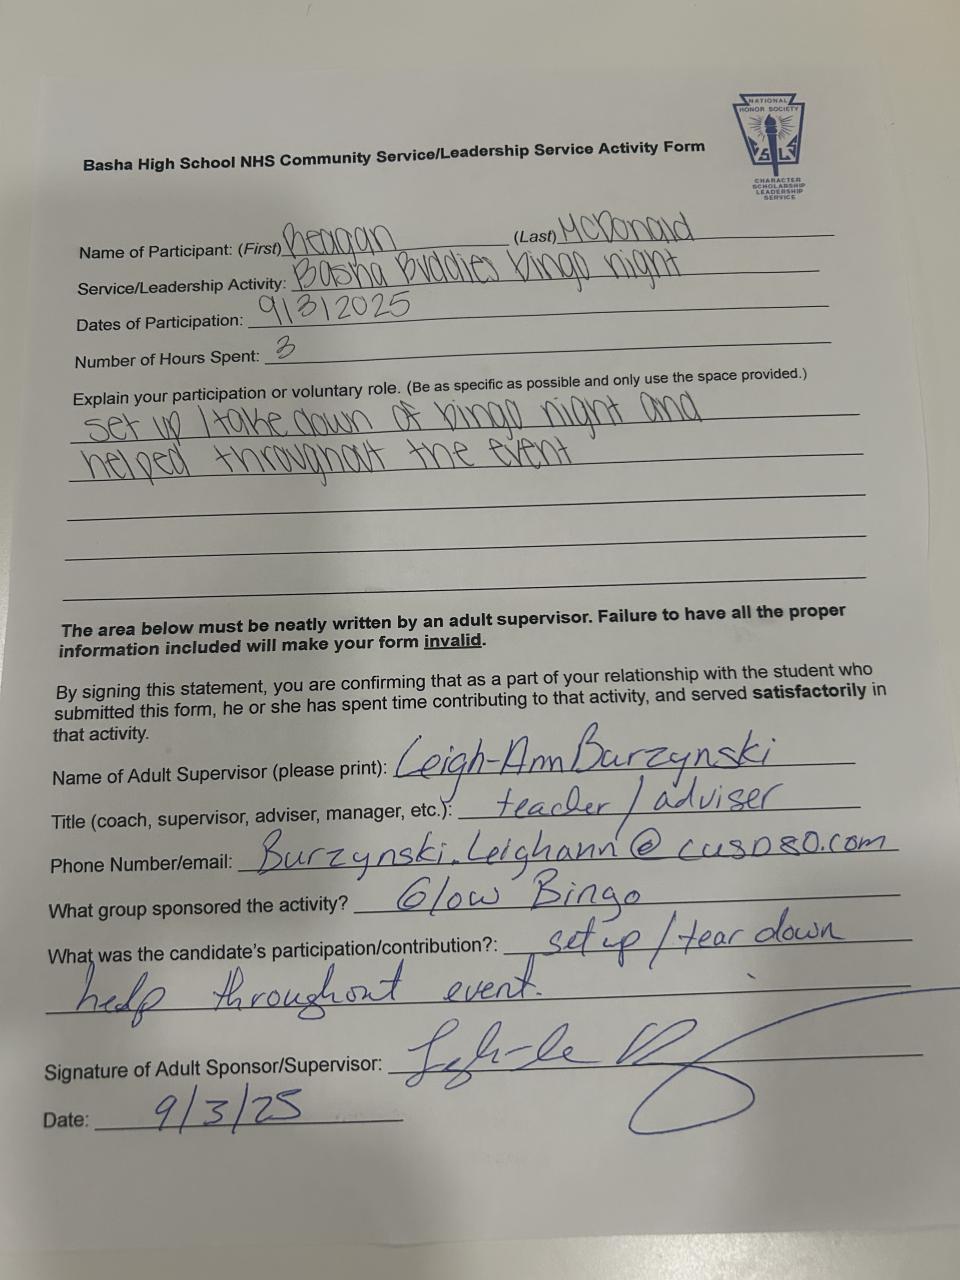 NATIONAL
HONOR SOCIETY
S L S
CHARACTER
SCHOLARSHIP
LEADERSHIP
SERVICE
Basha High School NHS Community Service/Leadership Service Activity Form
Name of Participant: (First) Reagan (Last) McDonald
Service/Leadership Activity: Basha Buddies bingo night
Dates of Participation: 9/3/2025
Number of Hours Spent: 3
Explain your participation or voluntary role. (Be as specific as possible and only use the space provided.)
set up / take down of bingo night and
helped throughout the event
The area below must be neatly written by an adult supervisor. Failure to have all the proper
information included will make your form invalid.
By signing this statement, you are confirming that as a part of your relationship with the student who
submitted this form, he or she has spent time contributing to that activity, and served satisfactorily in
that activity.
Name of Adult Supervisor (please print): Leigh-Ann Burzynski
Title (coach, supervisor, adviser, manager, etc.): teacher / adviser
Phone Number/email: Burzynski.Leighann@cusd80.com
What group sponsored the activity? Glow Bingo
What was the candidate's participation/contribution?: set up / tear down
help throughout event.
Signature of Adult Sponsor/Supervisor:
Date: 9/3/25